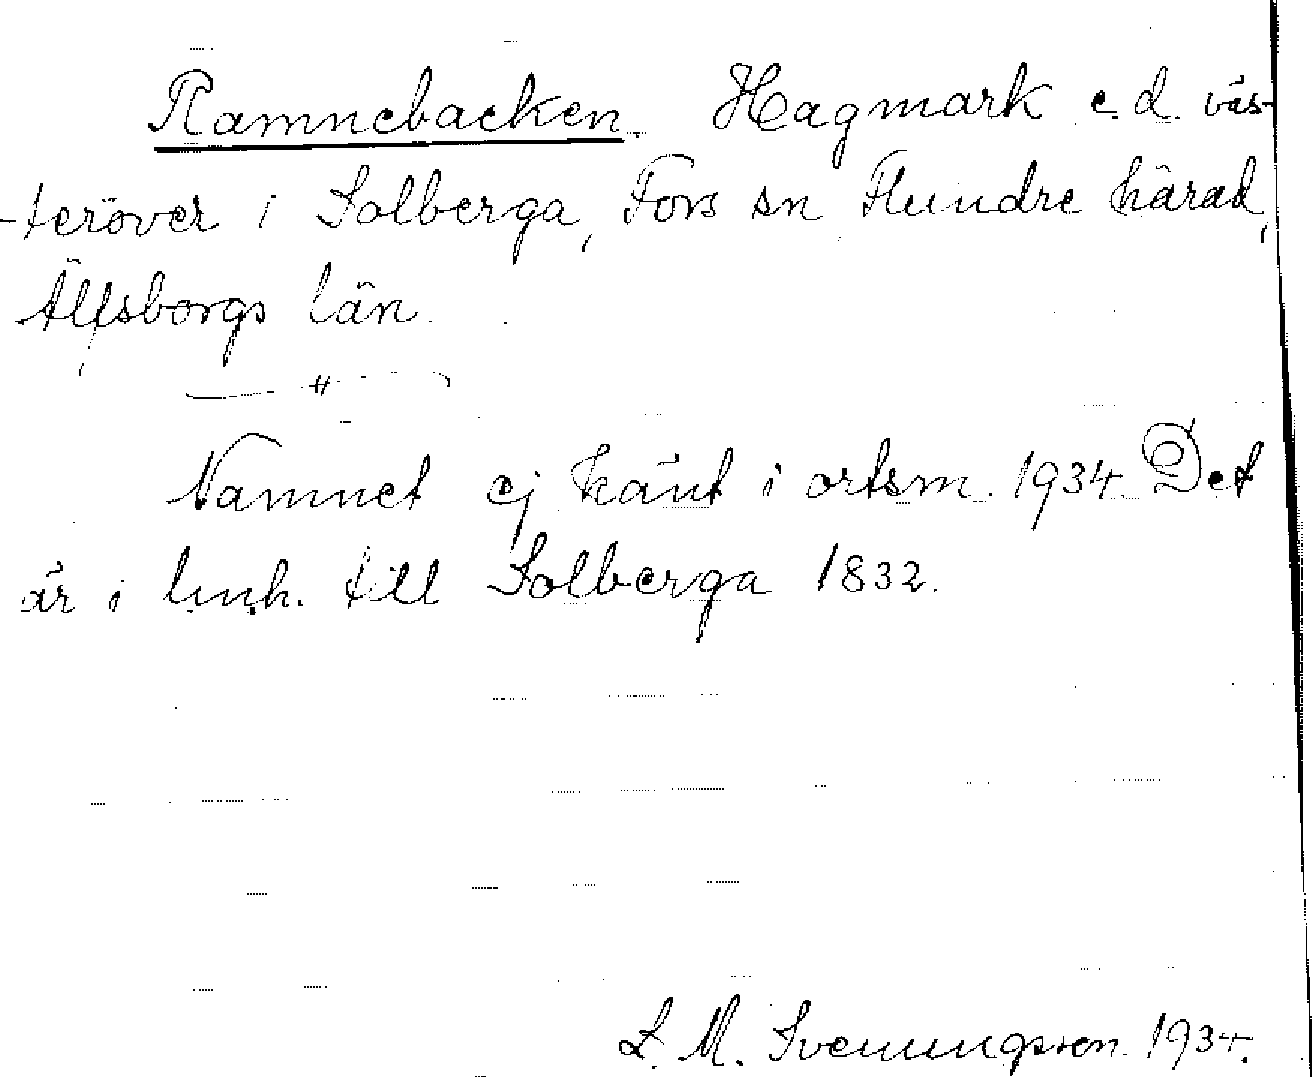 Ramnebacken. Hagmark e.d. väs-
-teröver i Solberga, Fors sn Flundre härad,
Älfsborgs län.
— " —
Namnet ej känt i ortsm. 1934. Det
är i lmh. till Solberga 1832.
L. M. Svenungsson 1934.